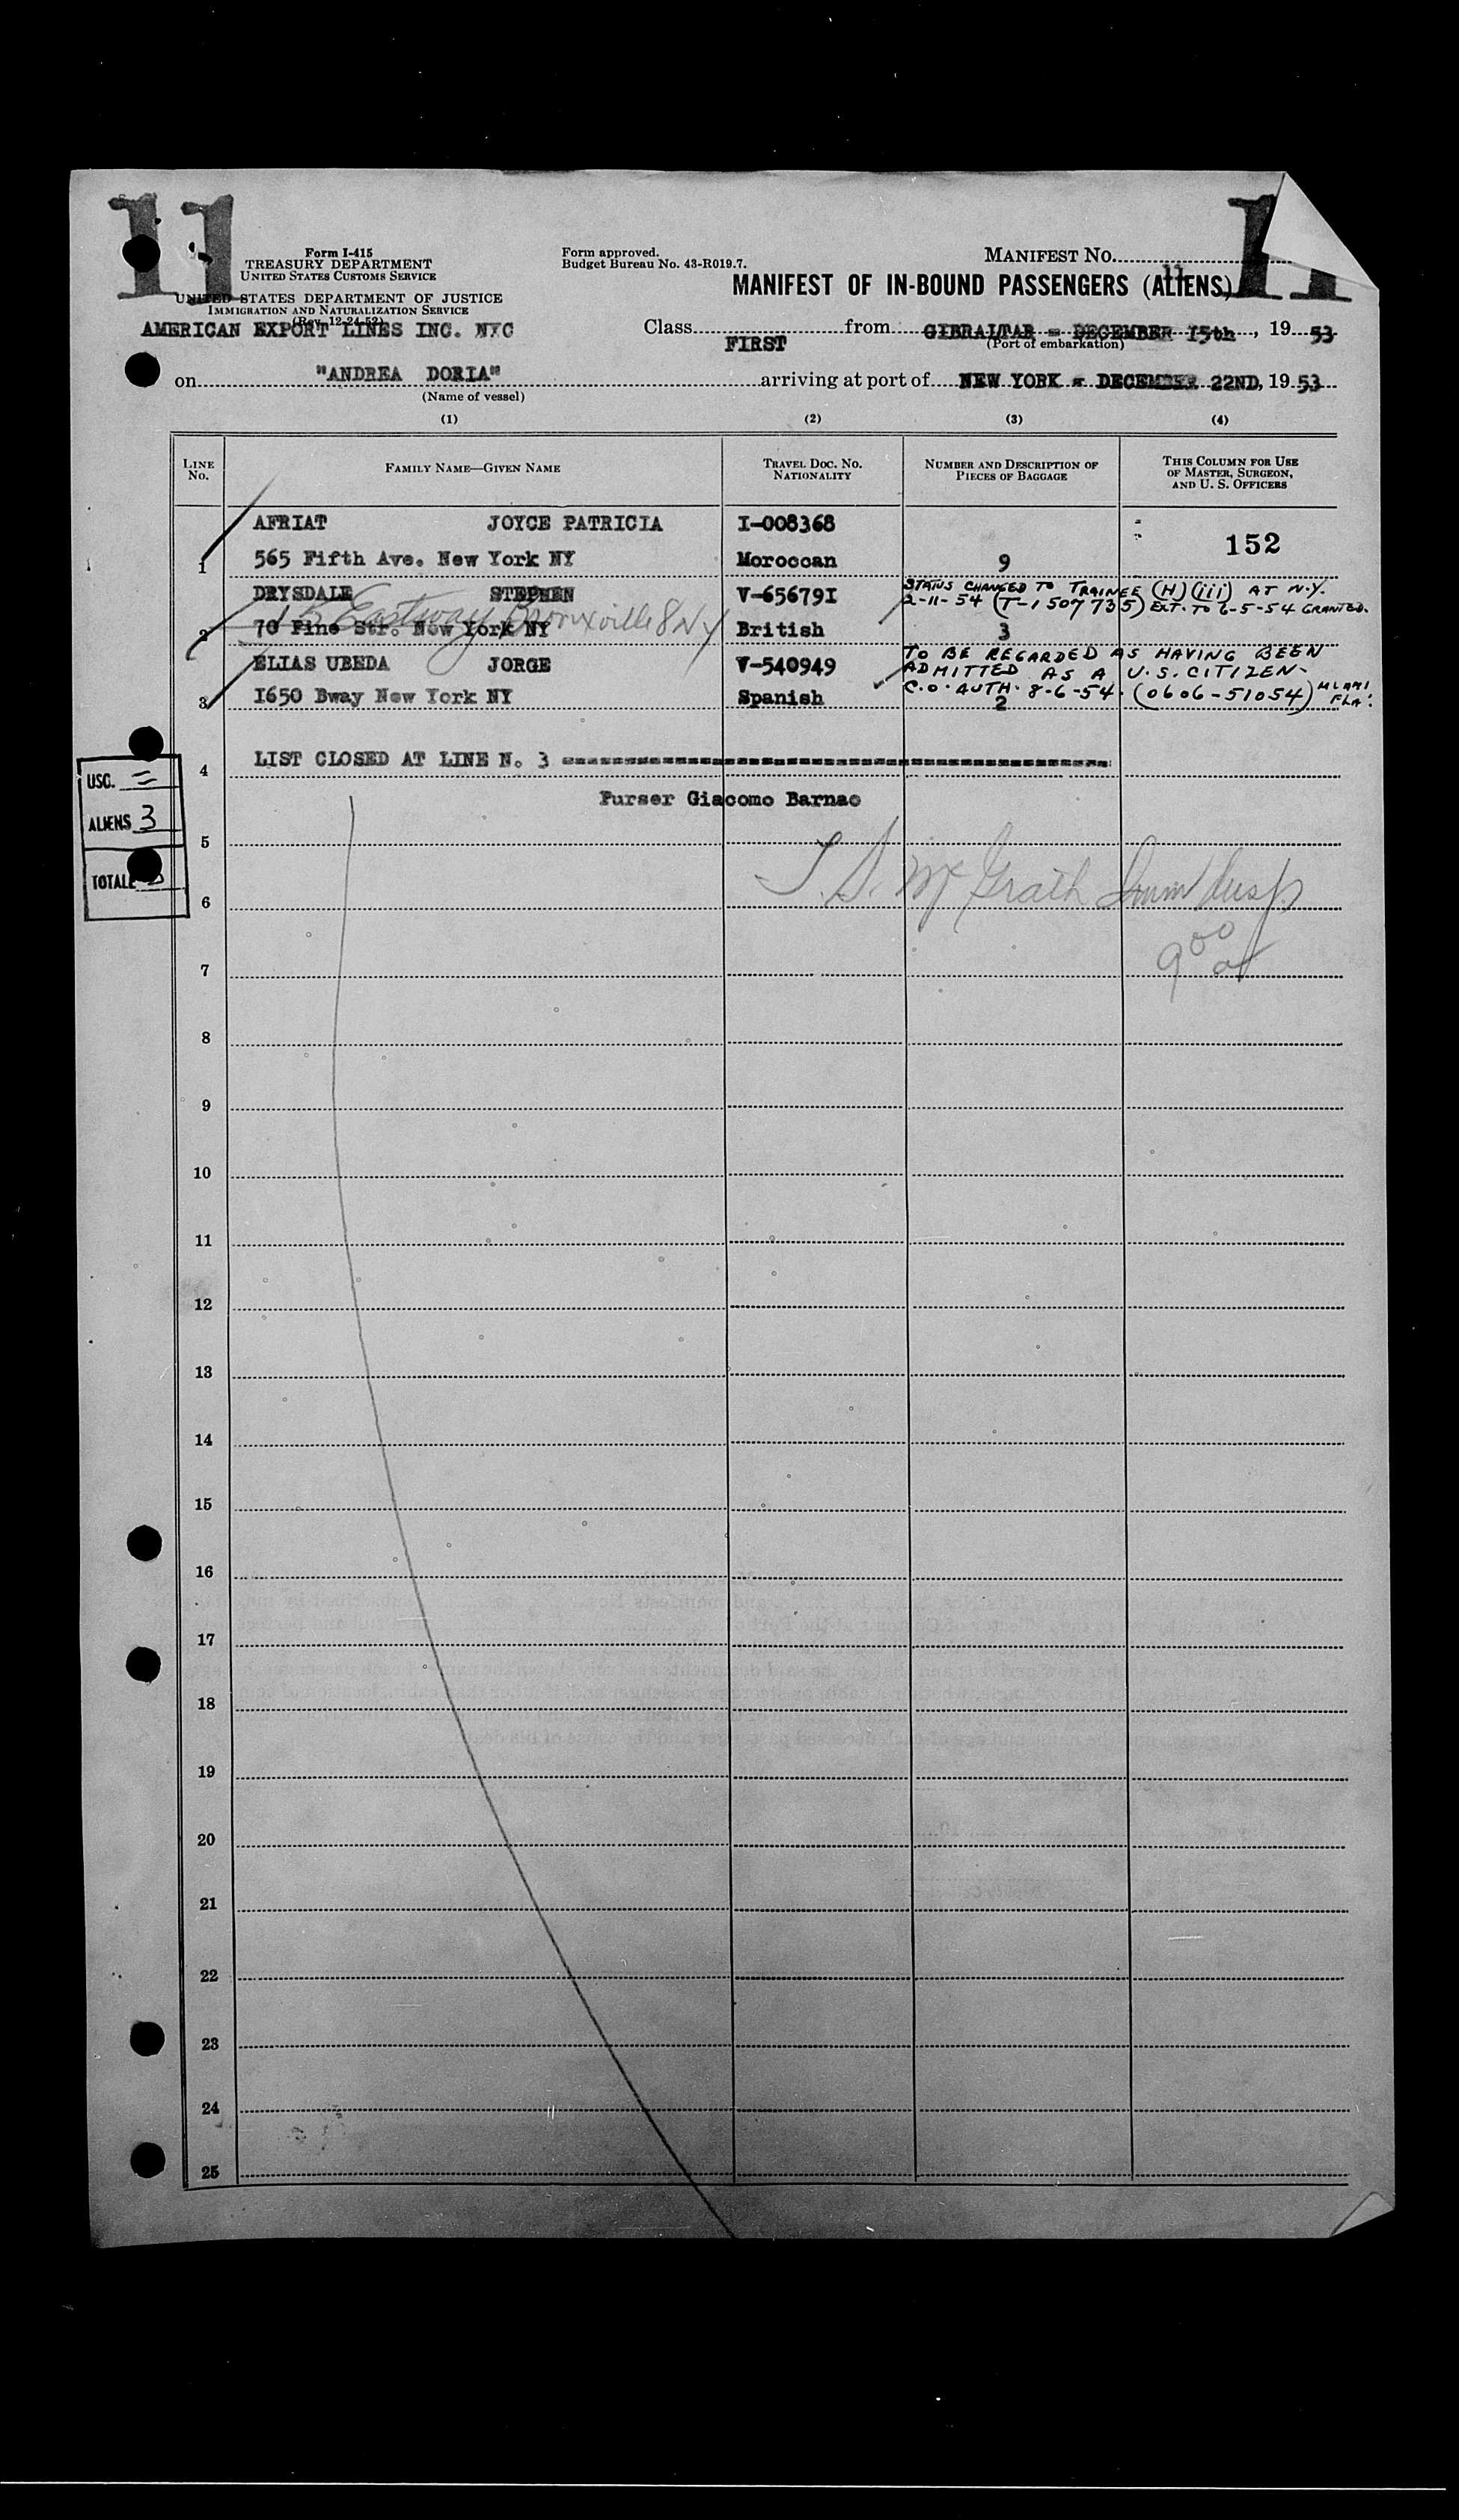 11
11
Form I-415
TREASURY DEPARTMENT
UNITED STATES CUSTOMS SERVICE
UNITED STATES DEPARTMENT OF JUSTICE
IMMIGRATION AND NATURALIZATION SERVICE
(Rev. 12-24-52)
Form approved.
Budget Bureau No. 43-R019.7.
MANIFEST NO.
11
MANIFEST OF IN-BOUND PASSENGERS (ALIENS)
AMERICAN EXPORT LINES INC. NYC
Class FIRST from GIBRALTAR - DECEMBER 15th, 19 53
(Port of embarkation)
on "ANDREA DORIA" arriving at port of NEW YORK - DECEMBER 22ND, 19 53
(Name of vessel)
(1) (2) (3) (4)
LINE NO. FAMILY NAME—GIVEN NAME TRAVEL DOC. NO. NATIONALITY NUMBER AND DESCRIPTION OF PIECES OF BAGGAGE THIS COLUMN FOR USE OF MASTER, SURGEON, AND U. S. OFFICERS
AFRIAT JOYCE PATRICIA I-008368
152
1 565 Fifth Ave. New York NY Moroccan 9
DRYSDALE STEPHEN V-65679I
STATUS CHANGED TO TRAINEE (H)(iii) AT N.Y.
2-11-54 (T-1507735) EXT. TO 6-5-54 GRANTED.
15 Eastway Bronxville 8 NY
2 70 Pine Str. New York NY British 3
ELIAS UBEDA JORGE V-540949
TO BE REGARDED AS HAVING BEEN
ADMITTED AS A U.S. CITIZEN-
C.O. AUTH. 8-6-54. (0606-51054) MIAMI FLA.
3 I650 Bway New York NY Spanish 2
4 LIST CLOSED AT LINE N. 3
Purser Giacomo Barnao
USC. =
ALIENS 3
TOTAL 3
5
McGrath Imm Insp.
6
9 00 a
7
8
9
10
11
12
13
14
15
16
17
18
19
20
21
22
23
24
25